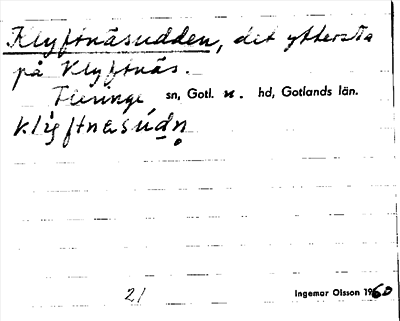 Klyftnäsudden, det yttersta
på Klyftnäs.
Fleringe sn, Gotl. n. hd, Gotlands län.
klyftnäsúdn̥
21 Ingemar Olsson 1960